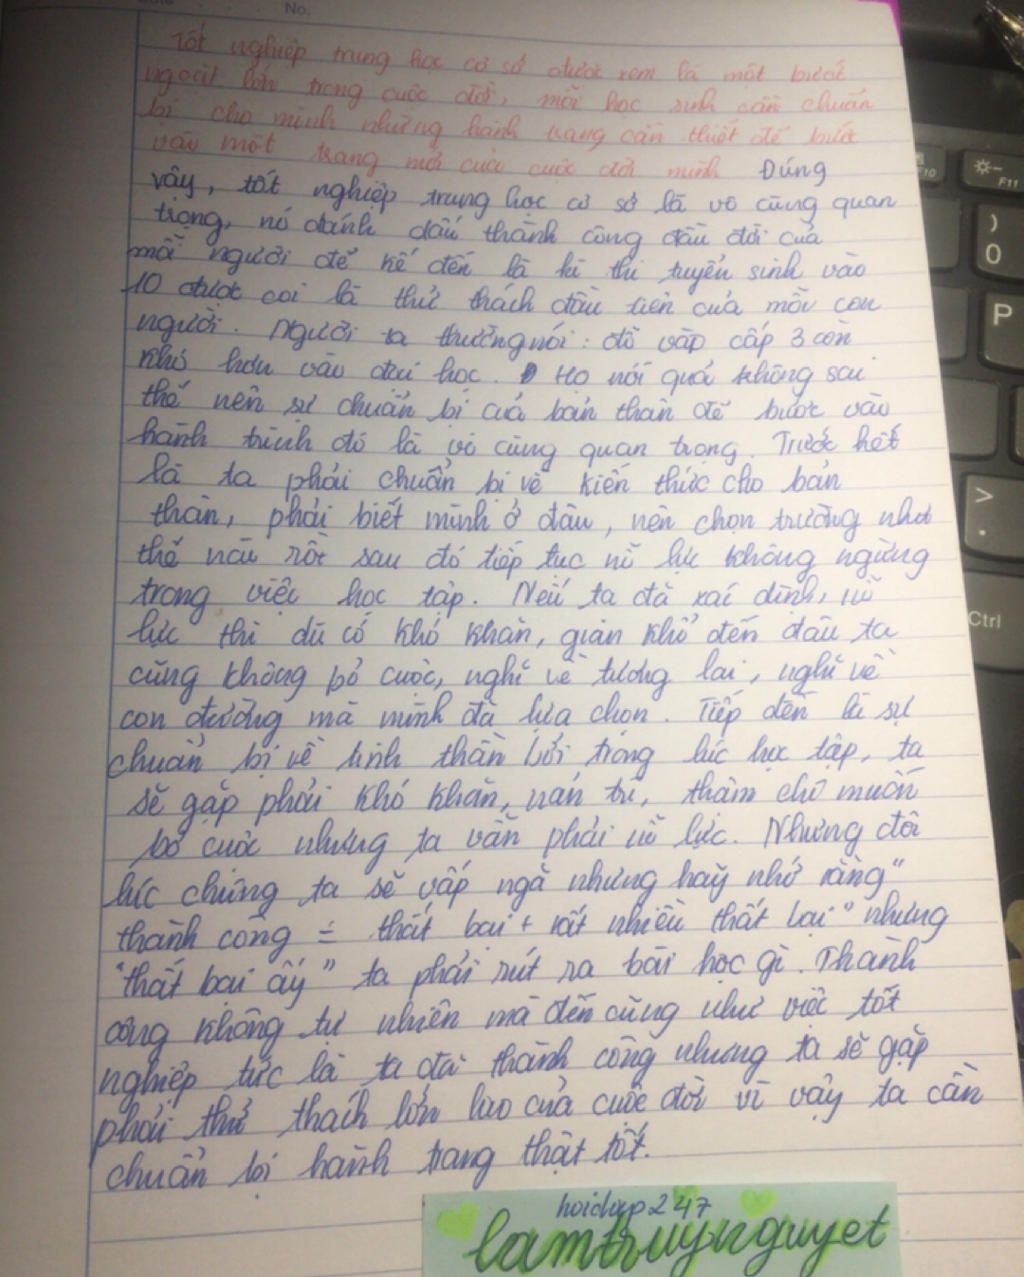 No.
Tốt nghiệp trung học cơ sở được xem là một bước
ngoặt lớn trong cuộc đời, mỗi học sinh cần chuẩn
bị cho mình những hành trang cần thiết để bước
vào một trang mới của cuộc đời mình Đúng
vậy, tốt nghiệp trung học cơ sở là vô cùng quan
trọng, nó đánh dấu thành công đầu đời của
mỗi người để kế đến là kì thi tuyển sinh vào
10 được coi là thử thách đầu tiên của mỗi con
người. Người ta thường nói: đỗ vào cấp 3 còn
khó hơn vào đại học. Họ nói quả không sai
thế nên sự chuẩn bị của bản thân để bước vào
hành trình đó là vô cùng quan trọng. Trước hết
là ta phải chuẩn bị về kiến thức cho bản
thân, phải biết mình ở đâu, nên chọn trường như
thế nào rồi sau đó tiếp tục nỗ lực không ngừng
trong việc học tập. Nếu ta đã xác định, nỗ
lực thì dù có khó khăn, gian khổ đến đâu ta
cũng không bỏ cuộc, nghĩ về tương lai, nghĩ về
con đường mà mình đã lựa chọn. Tiếp đến là sự
chuẩn bị về tinh thần bởi trong lúc học tập, ta
sẽ gặp phải khó khăn, nản trí, thậm chí muốn
bỏ cuộc nhưng ta vẫn phải nỗ lực. Nhưng đôi
lúc chúng ta sẽ vấp ngã nhưng hãy nhớ rằng "
thành công = thất bại + rất nhiều thất bại" nhưng
"thất bại ấy" ta phải rút ra bài học gì. Thành
công không tự nhiên mà đến cũng như việc tốt
nghiệp tức là ta đã thành công nhưng ta sẽ gặp
phải thử thách lớn lao của cuộc đời vì vậy ta cần
chuẩn bị hành trang thật tốt.
hoidap247
lamtruynguyet
F10
F11
)
0
P
>
.
Ctrl